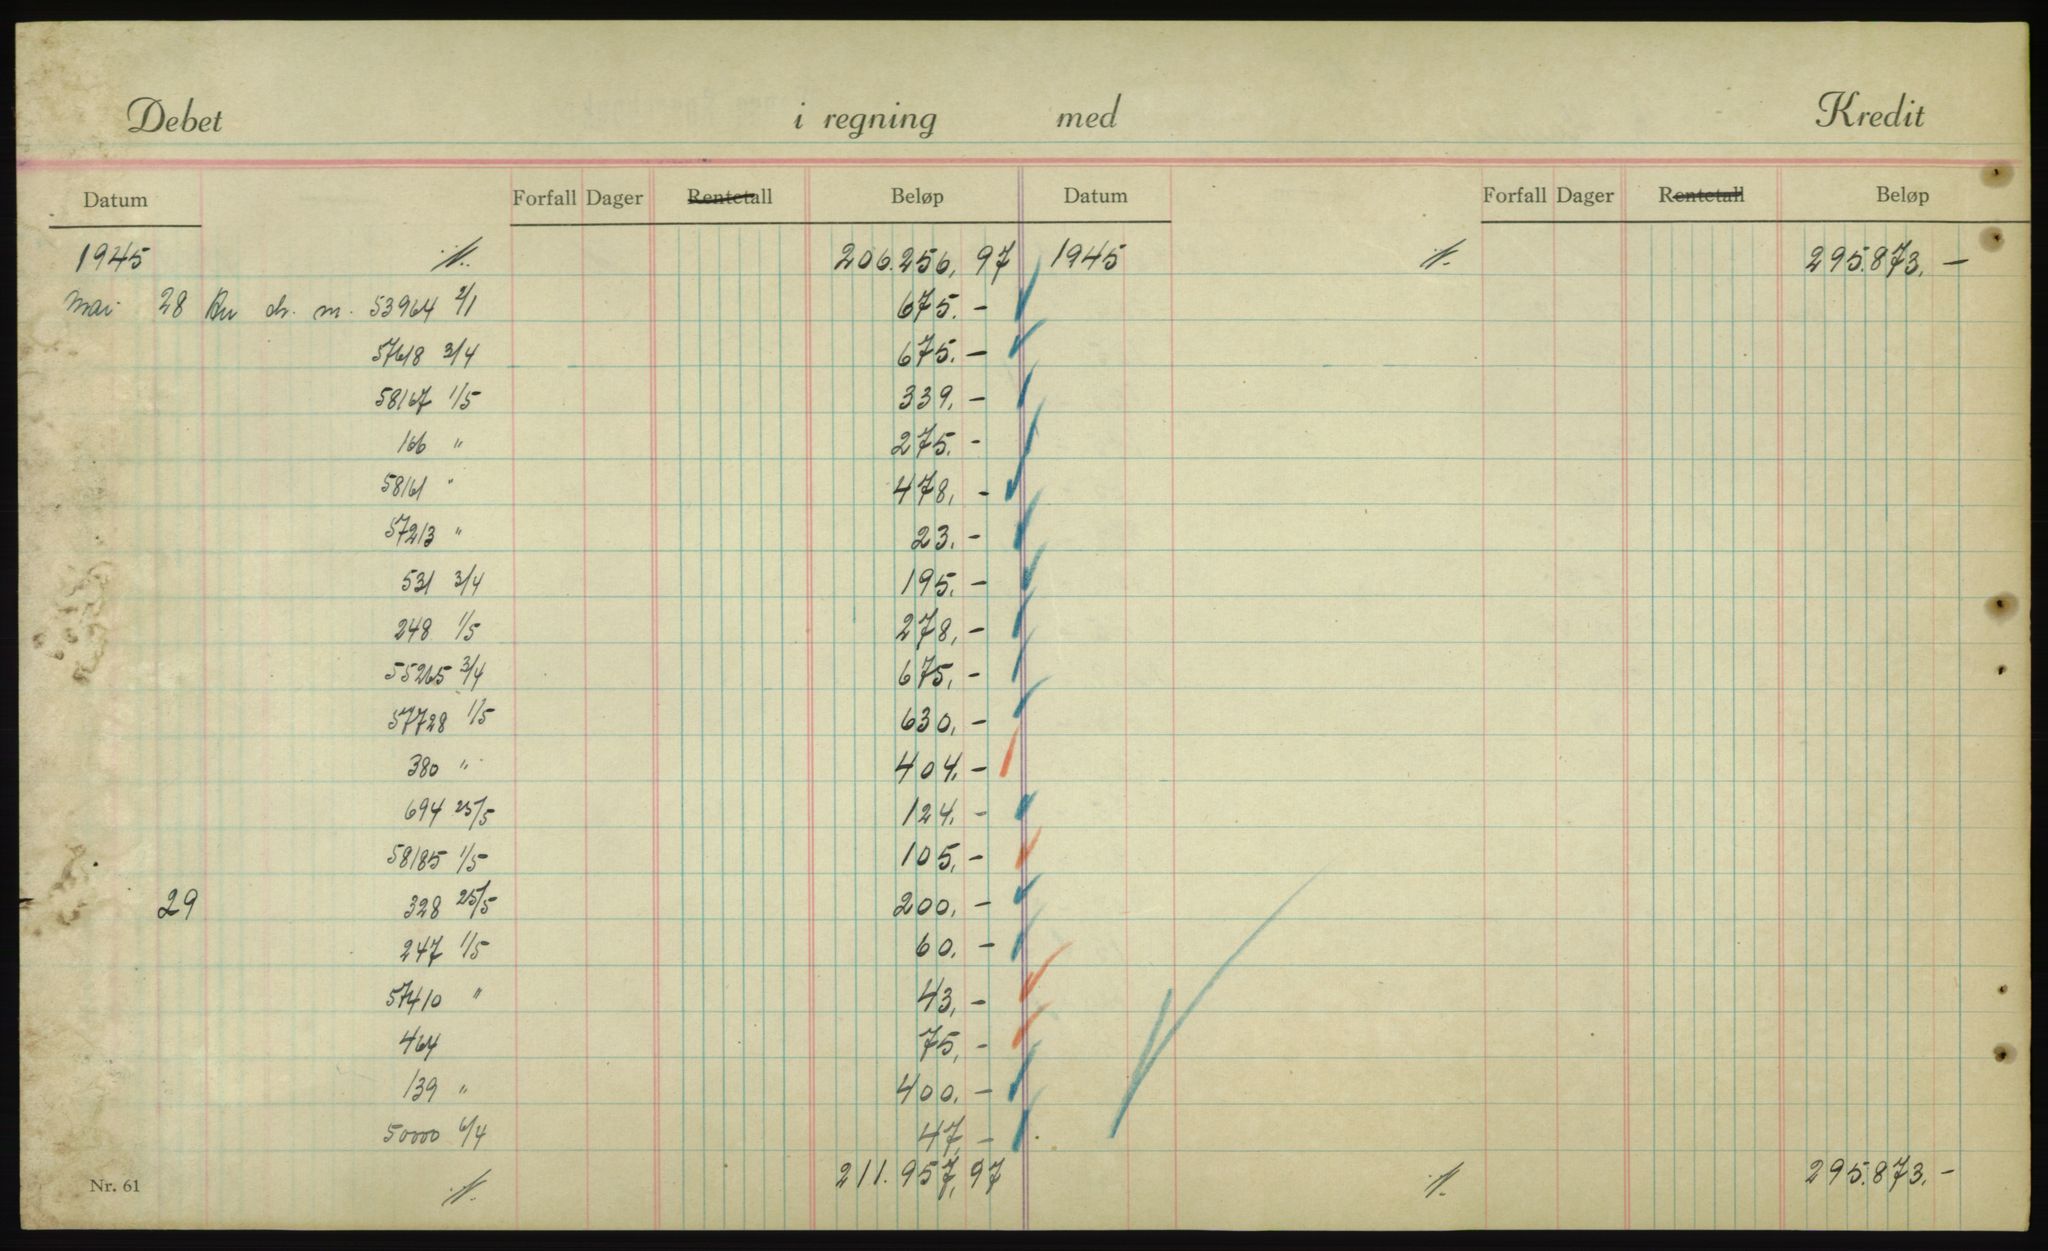 Debet i regning med Kredit
Datum Forfall Dager Rentetall Beløp Datum Forfall Dager Rentetall Beløp
1945 206.256,97 1945 295.873.—
Mai 28 m. 53964 2/1 675.—
57618 3/4 675.—
58167 1/5 339.—
166 " 275.-
58161 " 478,-
57213 " 23.-
531 3/4 195.-
248 1/5 278,-
55265 3/4 675,-
57728 1/5 630,-
380 " 404.-
694 25/5 124.-
58185 1/5 105,-
29 328 25/5 200.-
247 1/5 60.-
57410 " 43,-
464 75,-
139 " 400.-
50000 6/4 47,-
Nr. 61 211.957,97 295.873.-